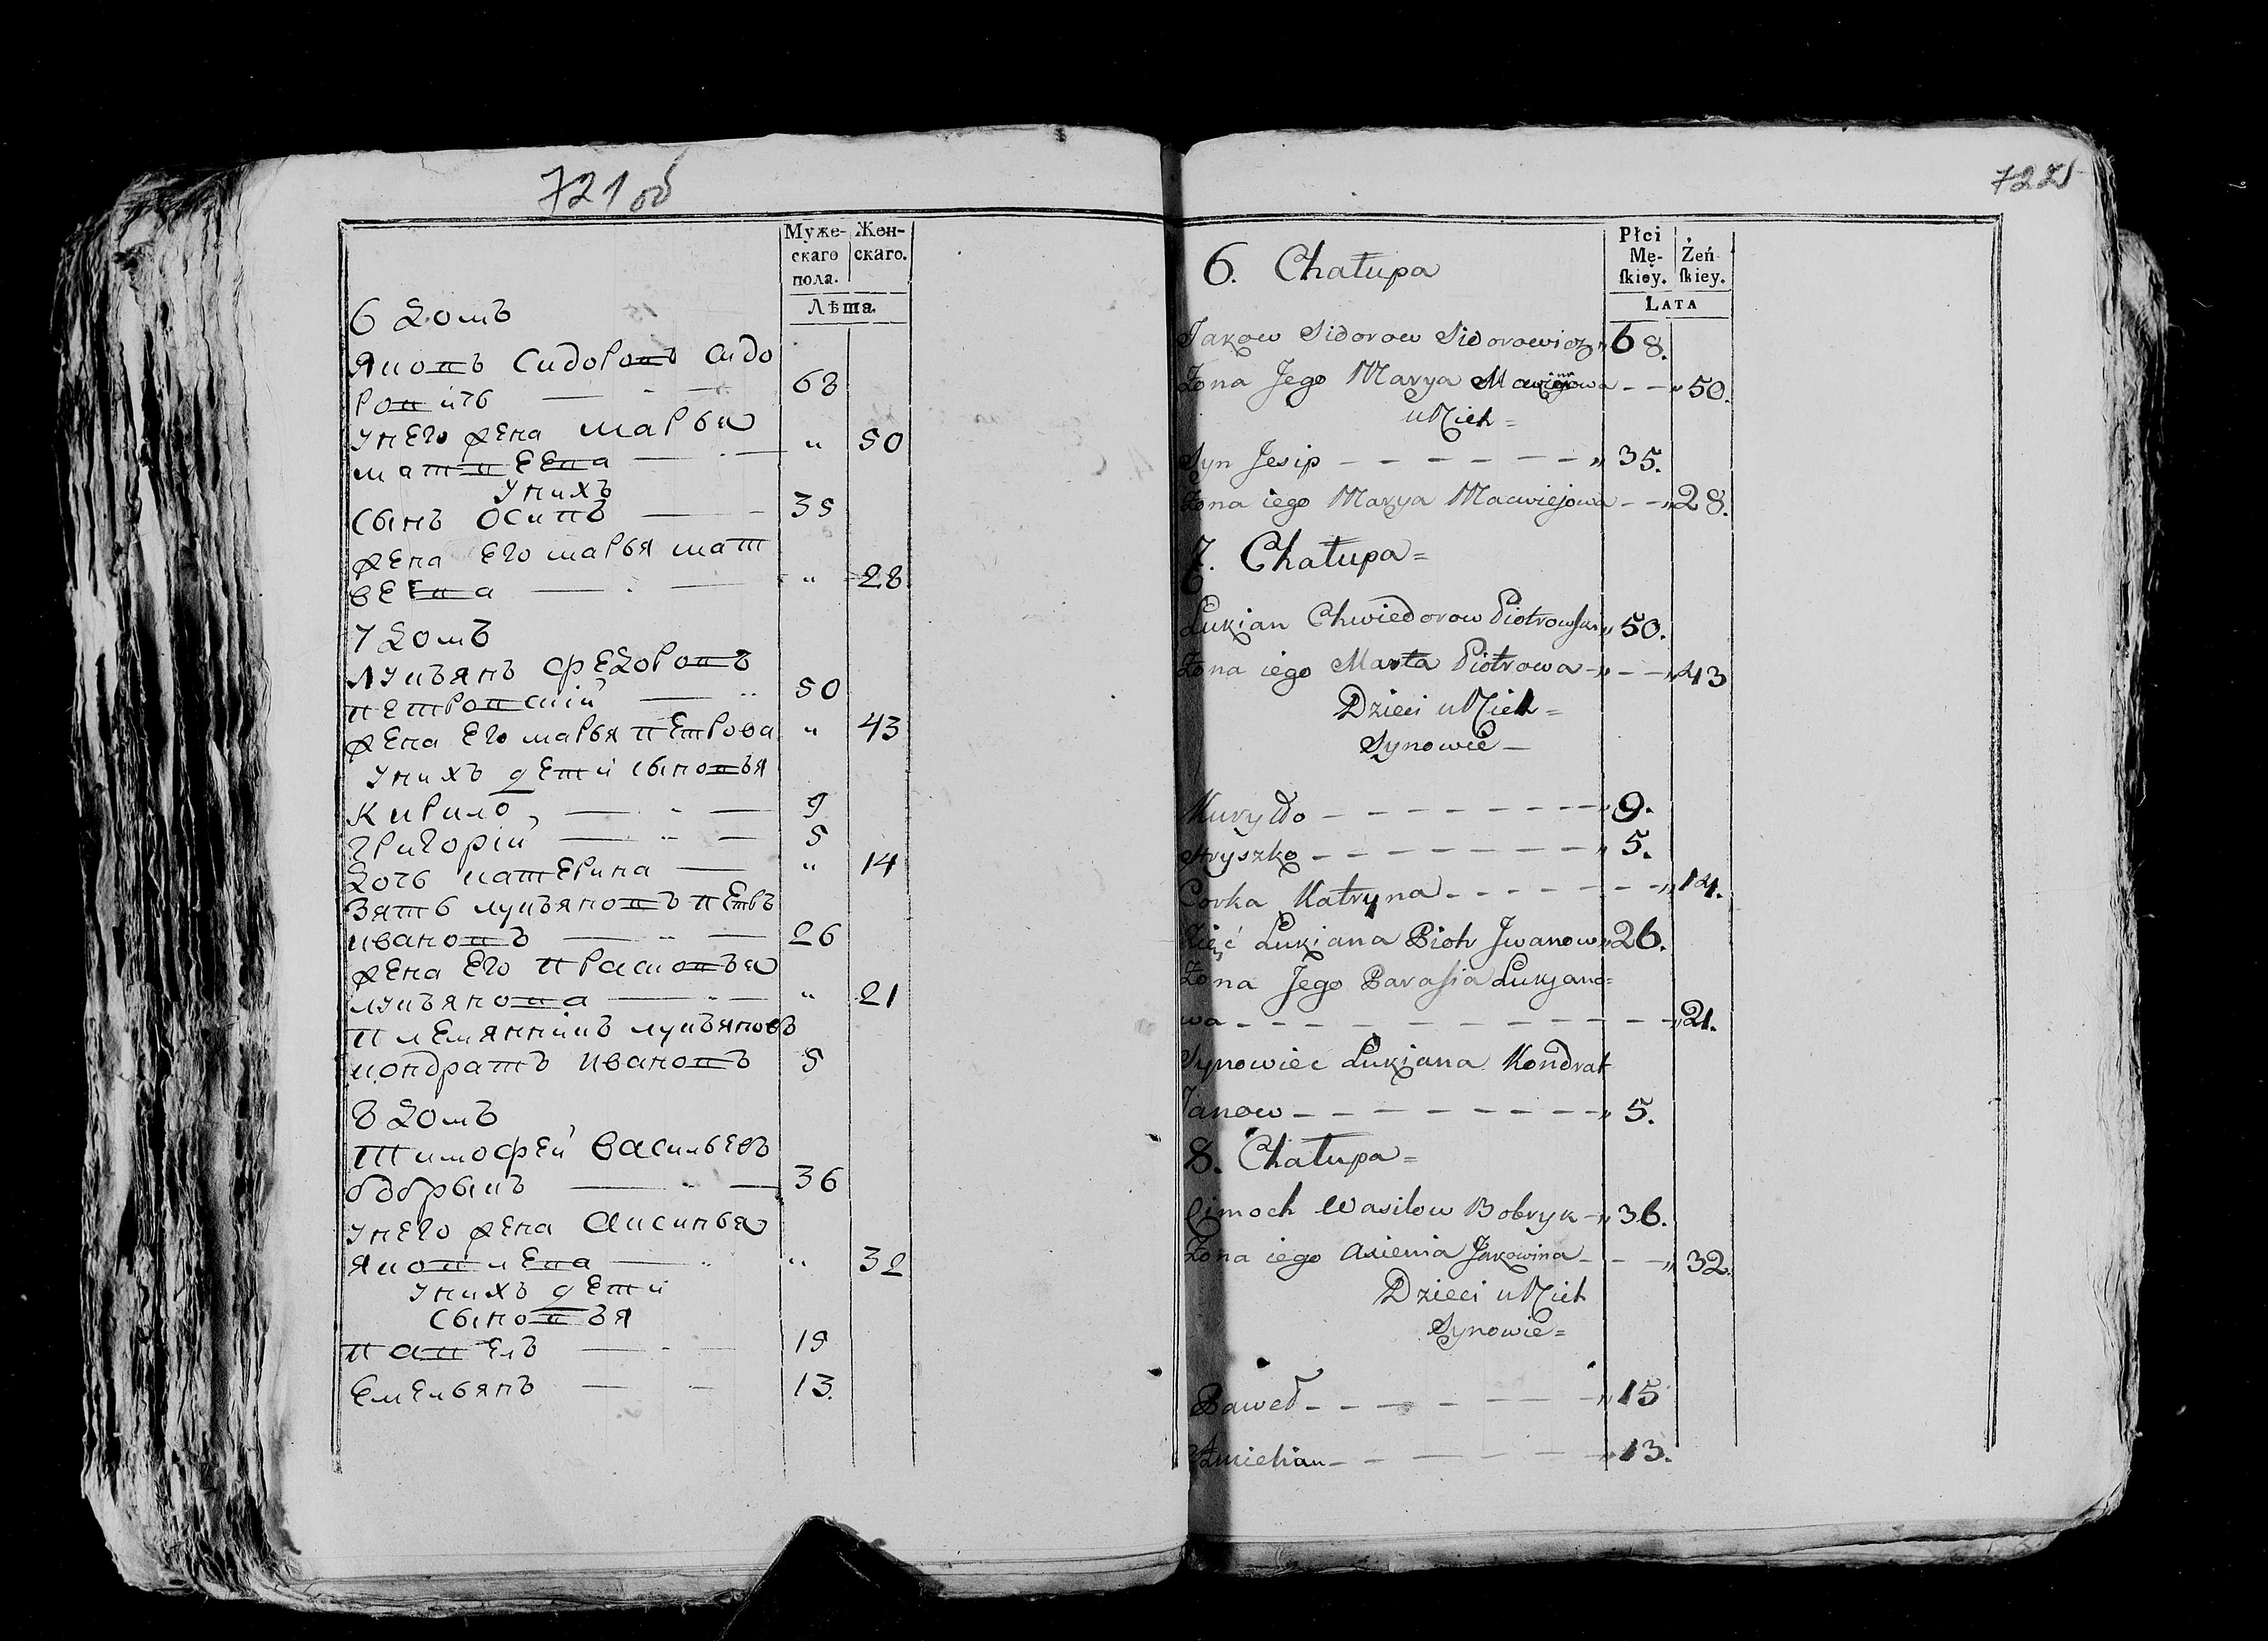 721 об
Муже-
скаго
пола.
Жен-
скаго.
Лѣта.
6 Домъ
Яковъ Сидоровъ Сидо
ровичь 68
у него жена Марья
Матвеева " 50
у нихъ
сынъ Осипъ 35
жена его Марья Мат
веева " 28
7 Домъ
Лукъянъ Федоровъ
Петровский 50
жена его Марья Петрова " 43
у нихъ дети сыновъя
Кирило 9
Григорий 5
дочь Катерина " 14
зять Лукъяновъ Петръ
Ивановъ 26
жена его Прасковья
Лукъянова " 21
племянникъ Лукъяновъ
Кондратъ Ивановъ 5
8 Домъ
Тимофей Васильевъ
Бобрыкъ 36
у него жена Аксинья
Яковлева " 32
у нихъ дети
сыновъя
Павелъ 15
Емельянъ 13.
722
Płci
Mę-
skiey.
Żeń
skiey.
LATA
6. Chałupa
Jakow Sidorow Sidorowicz " 68.
Żona Jego Marya - - " 50.
u Nich =
Syn Jesip - - - - - - - " 35.
Żona iego Marya Maciejowa - - " 28.
7. Chałupa =
Łukjan Chwiedorow Piotrowski " 50.
Żona iego Marta Piotrowa - " - - " 43
Dzieci u Nich =
Synowie -
Kuryłło - - - - - - - - " 9.
Hryszko - - - - - - - - " 5.
Corka Katryna - - - - - - - " 14.
Zięć Łukjana Piotr Jwanow " 26.
Żona Jego Parasia Łukjano=
wa - - - - - - - - - - - " 21.
Synowiec Łukjana Kondrat
Janow - - - - - - - - " 5.
8. Chałupa =
Cimoch Wasilow Bobryk - " 36.
Żona iego Axienia Jakowina - - - " 32.
Dzieci u Nich
Synowie =
Paweł - - - - - - - " 15
Amielian - - - - - - " 13.